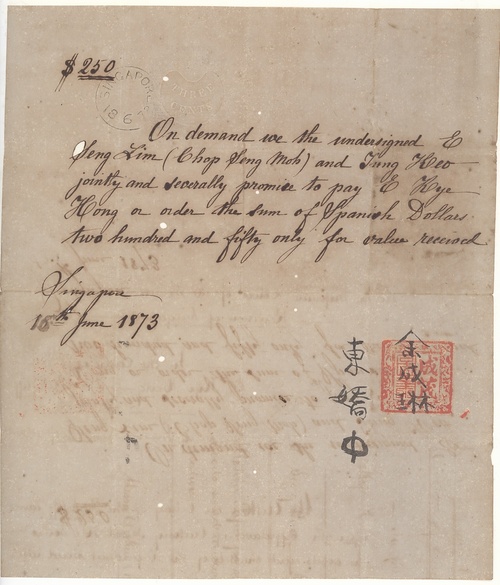 $250
SINGAPORE
On demand we the undersigned E
Seng Lim (Chop Seng Moh) and Tung Keo
jointly and severally promise to pay E Kye
Hong or order the sum of Spanish Dollars
two hundred and fifty only for value received
Singapore
16th June 1873
余成琳
東
中